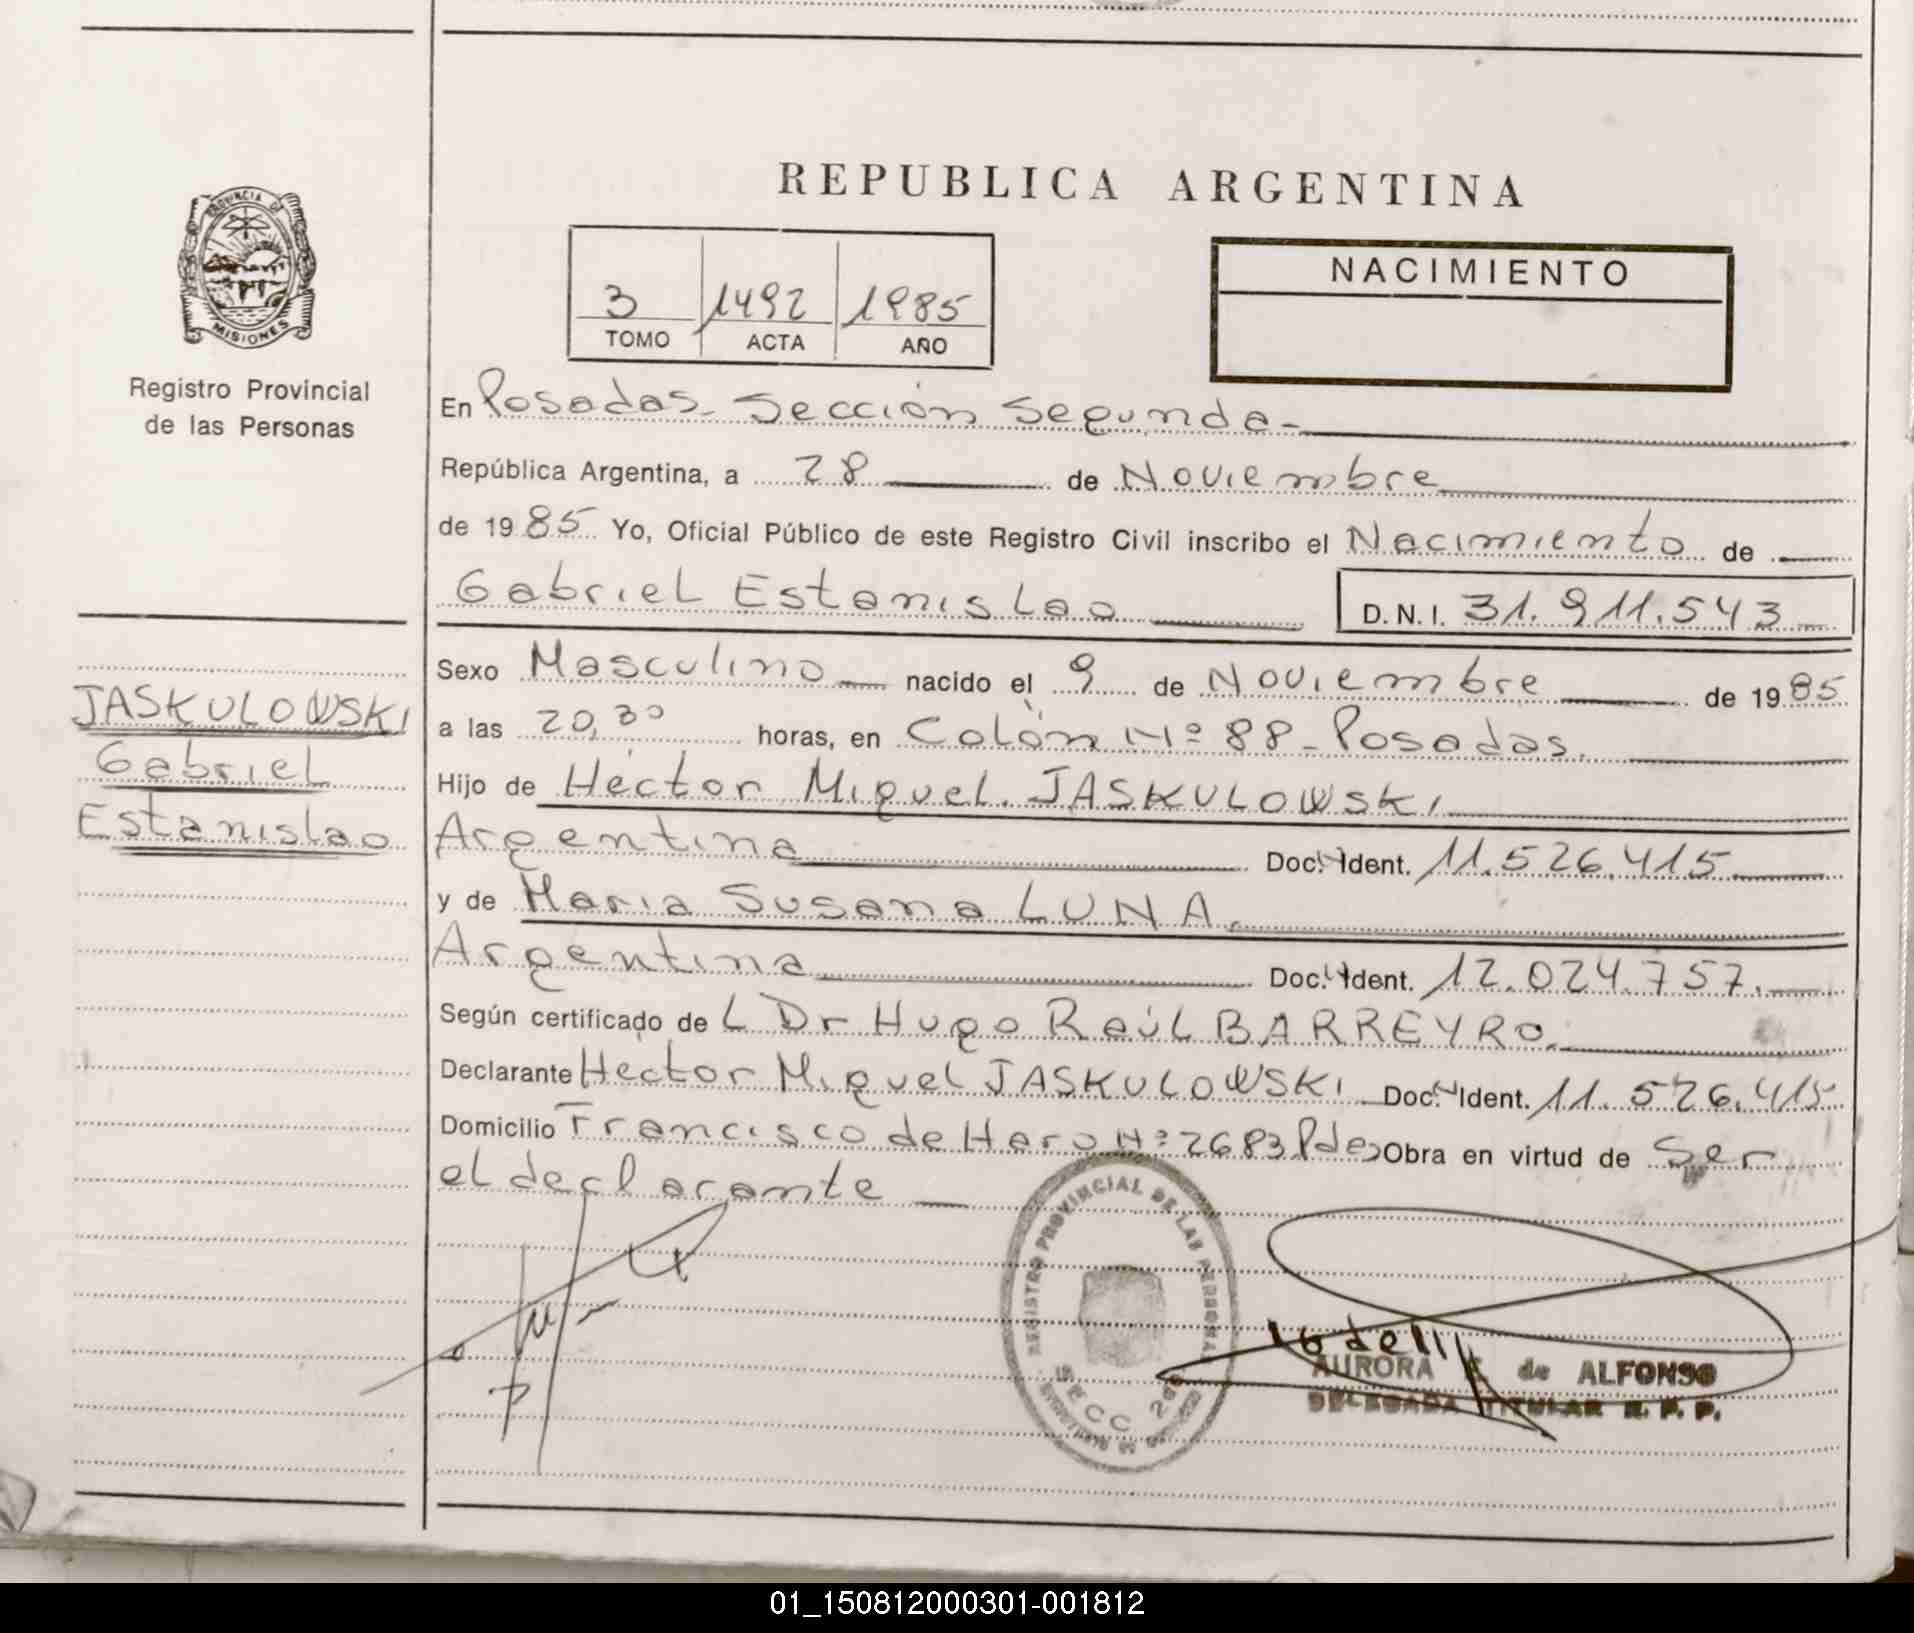 REPUBLICA ARGENTINA
PROVINCIA DE
MISIONES
Registro Provincial
de las Personas
3 1492 1985
TOMO ACTA AÑO
NACIMIENTO
En Posadas. Sección Segunda.
República Argentina, a 28 de Noviembre
de 1985 Yo, Oficial Público de este Registro Civil inscribo el Nacimiento de
Gabriel Estanislao D.N.I. 31.911.543
JASKULOWSKI
Gabriel
Estanislao
Sexo Masculino nacido el 9 de Noviembre de 1985
a las 20,30 horas, en Colón Nº 88 - Posadas.
Hijo de Héctor Miguel JASKULOWSKI
Argentina Doc. Ident. 11.526.415
y de Maria Susana LUNA.
Argentina Doc. Ident. 12.024.757.
Según certificado de L Dr Hugo Raúl BARREYRO.
Declarante Hector Miguel JASKULOWSKI Doc. Ident. 11.526.415
Domicilio Francisco de Haro Nº 2683 Pdas Obra en virtud de Ser
el declarante
REGISTRO PROVINCIAL DE LAS PERSONAS
SECC. 2da
AURORA de ALFONSO
DELEGADA TITULAR R. P. P.
01_150812000301-001812